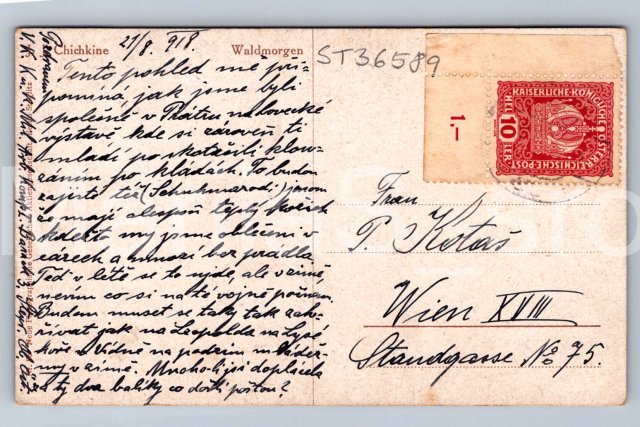 Chichkine
Waldmorgen
21/8. 918.
ST36589
Tento pohled mě při
pomíná, jak jsme byli
společně v Prátru na lovecké
výstavě kde si zároveň ti
mladí po skotačili klou-
záním po kládách. To budou
zajisté též jenom
že mají alespoň teplý kožich
kdežto my jsme oblečeni v
cárech a mnozí bez prádla.
Teď v létě se to ujde, ale v zimě
nevím co si na té vojně počnem.
Budem muset se taky tak zah-
řívat jak na Leopolda na Lysé
hoře u Vídně na podzim
v zimě. Mnoho-li jsi doplácela
za ty dva balíky co došli poštou?
Pozdravuje
KAISERLICHE KÖNIGLICHE ÖSTERREICHISCHE POST
HELLER
10
1.–
Frau
P. Kotaš
Wien XVIII
Standgasse No 75.